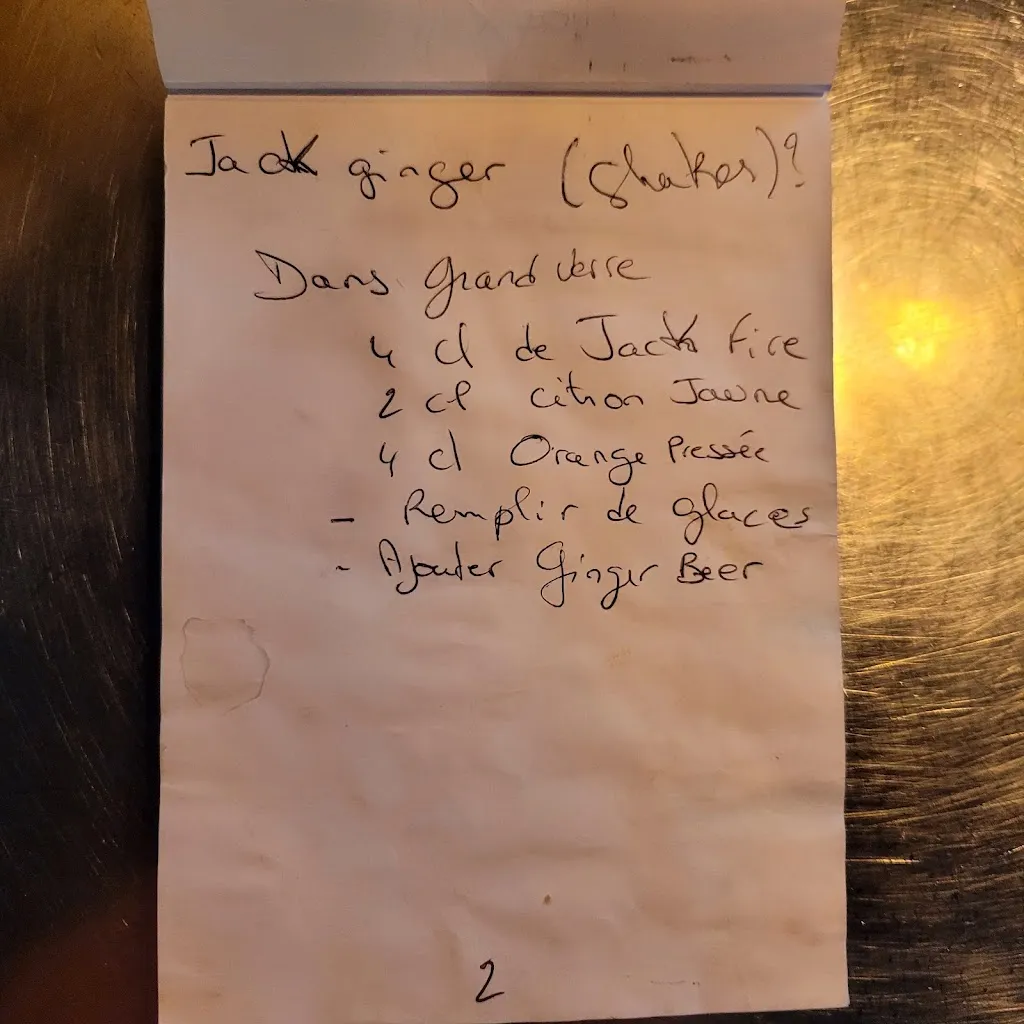 Jack ginger (shaker)?
Dans grand verre
4 cl de Jack Fire
2 cl citron Jaune
4 cl Orange Pressée
- Remplir de glaces
- Ajouter Ginger Beer
2